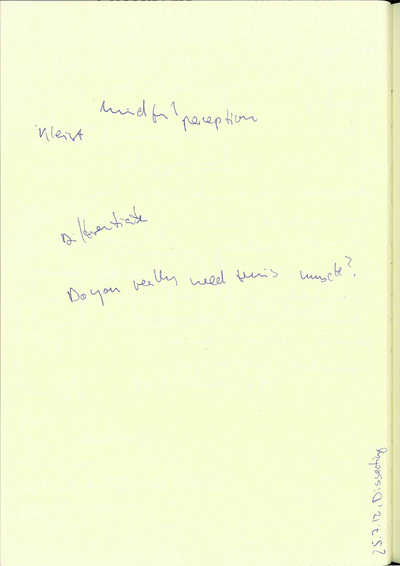 Mindful perception
Kleist
Differentiate
Do you really need muscle?
25.7.12, Dissecting